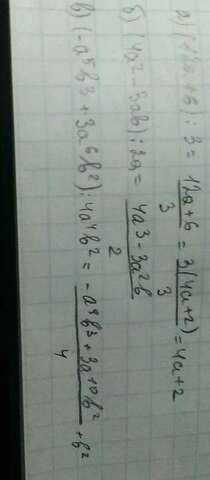 а) (12a + 6) : 3 = 12a+6 / 3 = 3(4a+2) / 3 = 4a+2
б) (4a² - 3ab) : 2a = 4a³ - 3a²b / 2
в) (-a⁵b³ + 3a⁶b²) : 4a⁴b² = -a⁹b³ + 3a⁺¹⁰b² / 4 + b²